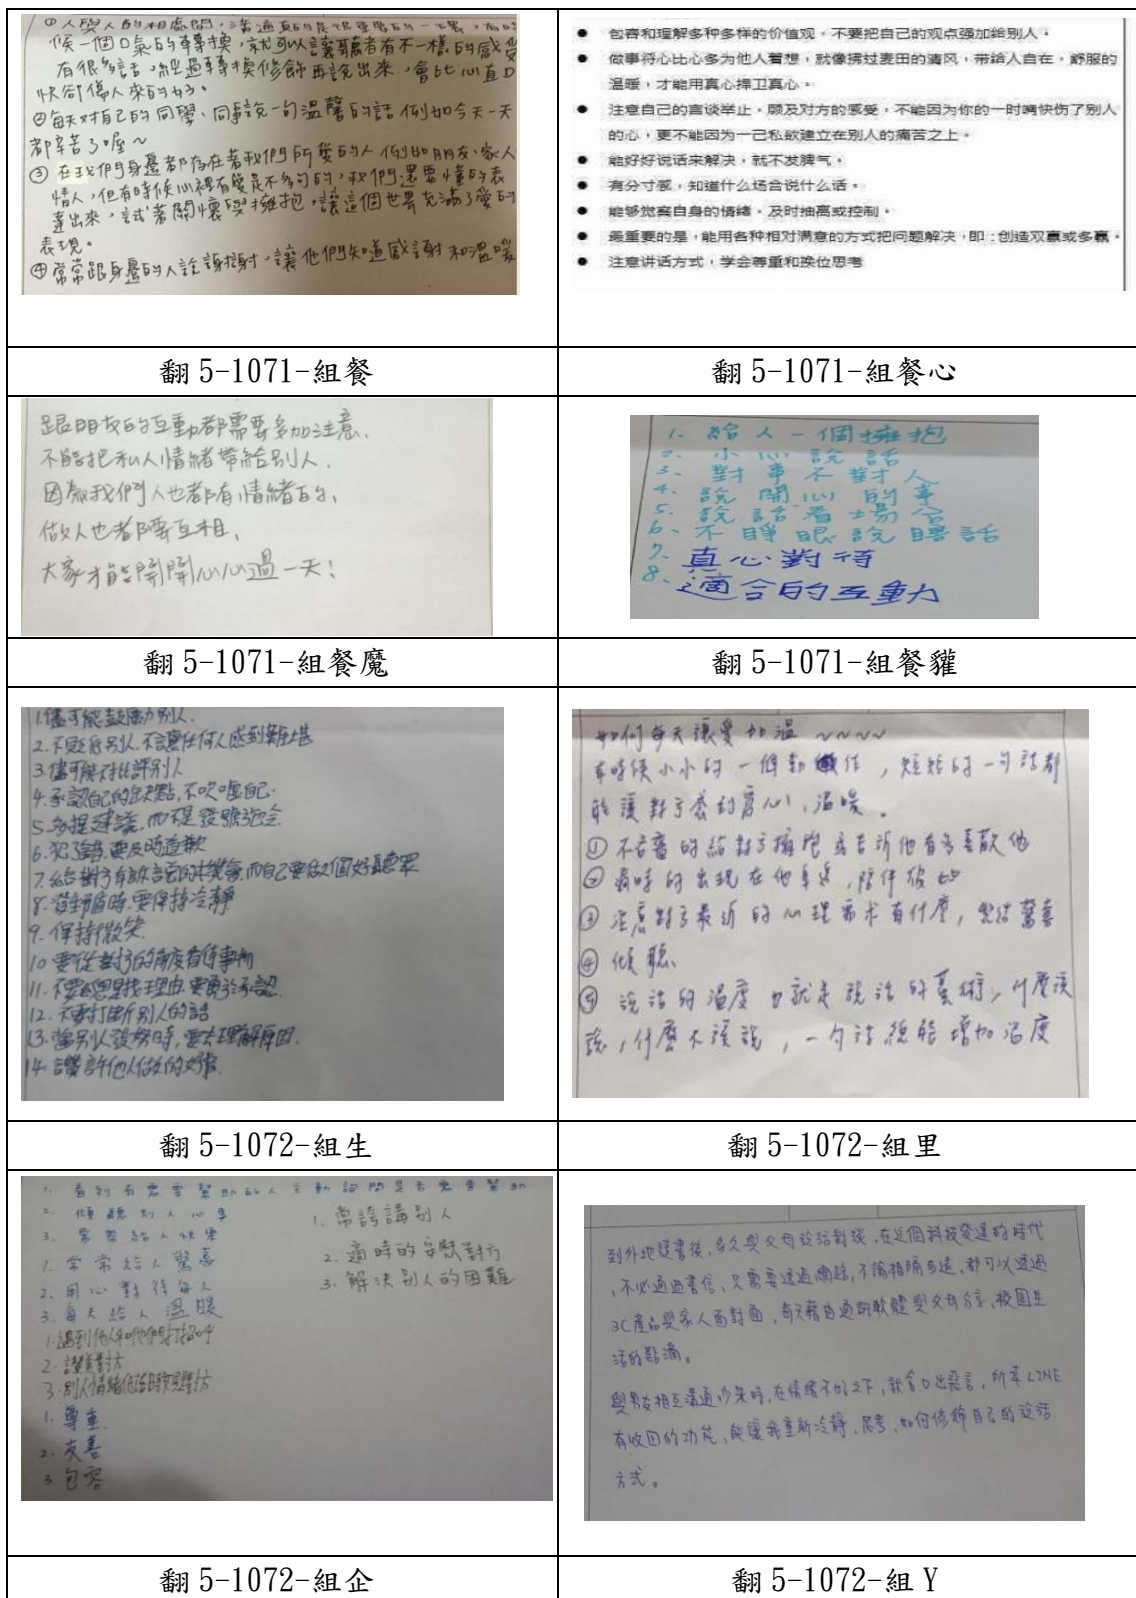 ①人與人的相處間，溝通真的是很重要的一環，有時
候一個口氣的轉換，就可以讓聽者有不一樣的感受
有很多話，經過轉換修飾再說出來，會比心直口
快卻傷人來的好。
②每天對自己的同學、同事說一句溫馨的話 例如今天一天
都辛苦了喔～
③ 在我們身邊都存在著我們所愛的人 例如朋友、家人
情人，但有時候心裡有愛是不夠的，我們還要懂的表
達出來，試著關懷與擁抱，讓這個世界充滿了愛的
表現。
④常常跟身邊的人說謝謝，讓他們知道感謝和溫暖
● 包容和理解多种多样的价值观。不要把自己的观点强加给别人。
● 做事将心比心多为他人着想，就像拂过麦田的清风，带给人自在，舒服的
温暖，才能用真心捍卫真心。
● 注意自己的言谈举止。顾及对方的感受，不能因为你的一时嘴快伤了别人
的心，更不能因为一己私欲建立在别人的痛苦之上。
● 能好好说话来解决，就不发脾气。
● 有分寸感，知道什么场合说什么话。
● 能够觉察自身的情绪。及时抽离或控制。
● 最重要的是，能用各种相对满意的方式把问题解决，即：创造双赢或多赢。
● 注意讲话方式，学会尊重和换位思考
翻 5-1071-組餐
翻 5-1071-組餐心
跟朋友的互動都需要多加注意、
不能把私人情緒帶給別人、
因為我們人也都有情緒的、
做人也都要互相、
大家才能開開心心過一天！
1. 給人一個擁抱
2. 小心說話
3. 對事不對人
4. 說開心的事
5. 說話看場合
6、不睜眼說瞎話
7、真心對待
8、適合的互動力
翻 5-1071-組餐魔
翻 5-1071-組餐獾
1.儘可能鼓勵別人.
2.不貶低別人.不讓任何人感到難堪
3.儘可能不批評別人
4.承認自己的缺點,不吹噓自己.
5.多提建議,而不是發號施令
6.犯錯,要及時道歉
7.給對方有訴說的機會,而自己要做個好聽眾
8.發生矛盾時,要保持冷靜
9.保持微笑.
10.要從對方的角度看待事物
11.不要總是找理由.要勇於承認.
12.不要打斷別人的話
13.當別人發怒時,要去理解原因.
14.讚許他人做的好事.
如何每天讓愛加溫 ~~~~
有時候小小的一個動作，短短的一句話都
能讓對方感到窩心，溫暖。
① 不吝嗇的給對方擁抱 或告訴他有多喜歡他
② 適時的出現在他身邊，陪伴彼此
③ 注意對方最近的心理需求有什麼，製造驚喜
④ 傾聽
⑤ 說話的溫度 也就是說話的藝術，什麼該
說，什麼不該說，一句話總能增加溫度
翻 5-1072-組生
翻 5-1072-組里
1. 看到有需要幫助的人主動詢問是否需要幫助
2. 傾聽別人心事
3. 常常給人快樂
1. 常常給人驚喜
2. 用心對待每人
3. 每天給人溫暖
1.遇到他人和他們打招呼
2.讚美對方
3.別人情緒低落時安慰對方
1. 尊重
2. 友善
3. 包容
1. 常誇講別人
2. 適時的安慰對方
3. 解決別人的困難
到外地讀書後，多久與父母說話對談，在這個科技發達的時代
，不必透過書信，只需要透過網路，不論相隔多遠，都可以透過
3C產品與家人面對面，每天藉由通訊軟體與父母分享，校園生
活的點滴。
與男友相互溝通吵架時，在情緒不好之下，就會口出惡言，所幸LINE
有收回的功能，能讓我重新冷靜、思考，如何修飾自己的說話
方式。
翻 5-1072-組企
翻 5-1072-組 Y